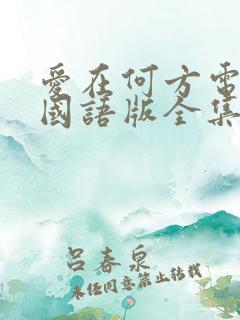 愛在何方電
國語版全集
呂春泉
未經同意禁止轉載